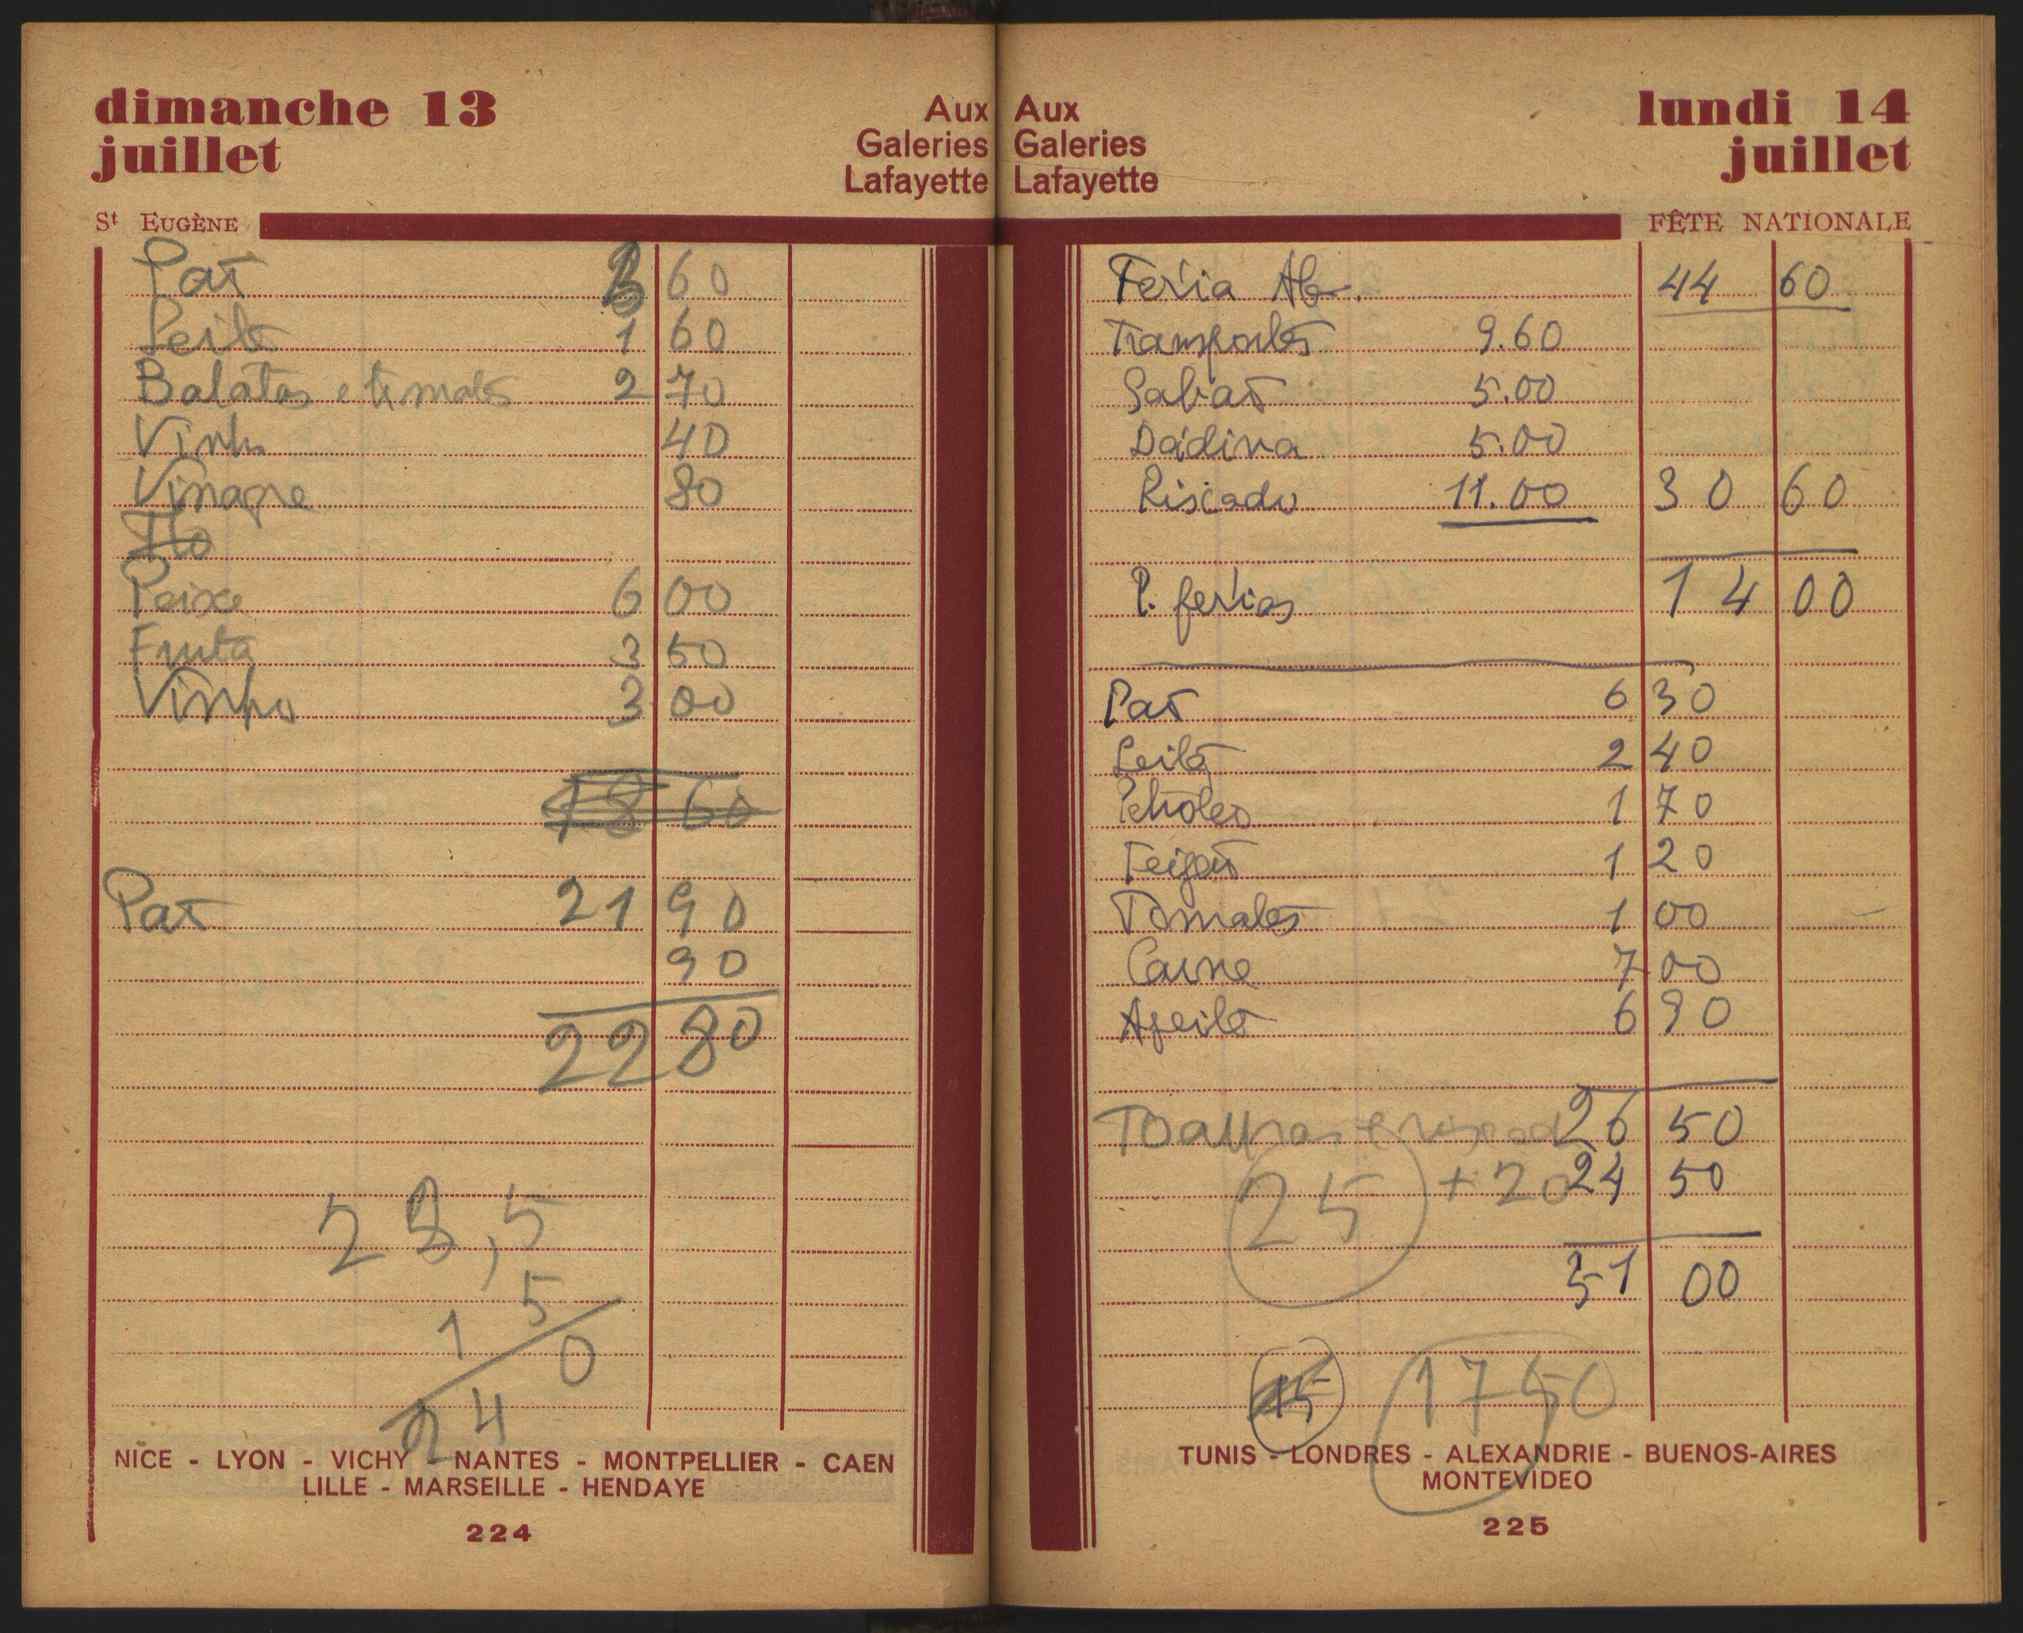 dimanche 13
juillet
Aux
Galeries
Lafayette
St EUGÈNE
Pão 3 60
Leite 1 60
Batatas e tomates 2 70
Vinho 40
Vinagre 80
Peixe 6 00
Fruta 3 50
Vinho 3 00
18 60
Pão 21 90
90
22 80
5
1 5
0
2 4
NICE - LYON - VICHY - NANTES - MONTPELLIER - CAEN
LILLE - MARSEILLE - HENDAYE
224
Aux
Galeries
Lafayette
lundi 14
juillet
FÊTE NATIONALE
Feria 44 60
Transportes 9.60
Sabão 5.00
Dádiva 5.00
Riscado 11.00 30 60
P. ferias 14 00
Pão 6 30
Leite 2 40
Petroleo 1 70
Feijão 1 20
Tomates 1 00
Carne 7 00
Azeite 6 90
Toalhas e 26 50
25 + 20 24 50
51 00
15 1750
TUNIS - LONDRES - ALEXANDRIE - BUENOS-AIRES
MONTEVIDEO
225